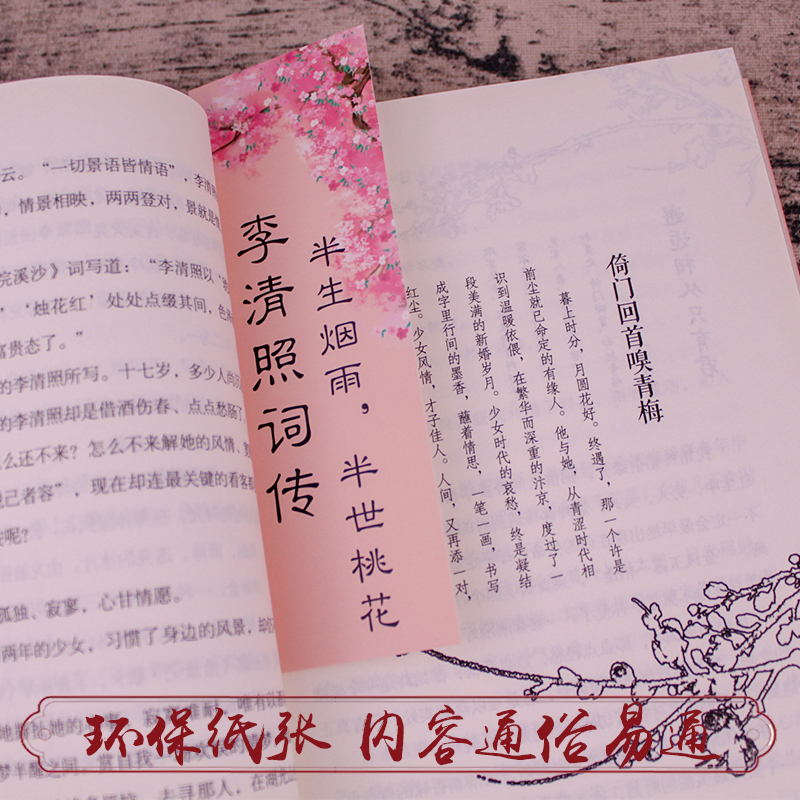 云。“一切景语皆情语”，李清
，情景相映，两两登对，景就是
浣溪沙》词写道：“李清照以‘
’‘烛花红’处处点缀其间，色
富贵态了。”
的李清照所写。十七岁，多少人尚
的李清照却是借酒伤春、点点愁肠
么还不来？怎么不来解她的风情、
己者容”，现在却连最关键的看客
呢？
孤独、寂寥，心甘情愿。
两年的少女，习惯了身边的风景，
寂寞难耐，唯有以
梦半醒之间，
去寻那人，在
李清照词传
半生烟雨，半世桃花
倚门回首嗅青梅
暮上时分，月圆花好。终遇了，那一个许是
前尘就已命定的有缘人。他与她，从青涩时代相
识到温暖依偎，在繁华而深重的汴京，度过了一
段美满的新婚岁月。少女时代的哀愁，终是凝结
成字里行间的墨香，蘸着情思，一笔一画，书写
红尘。少女风情，才子佳人。人间，又再添一对，
环保纸张 内容通俗易通